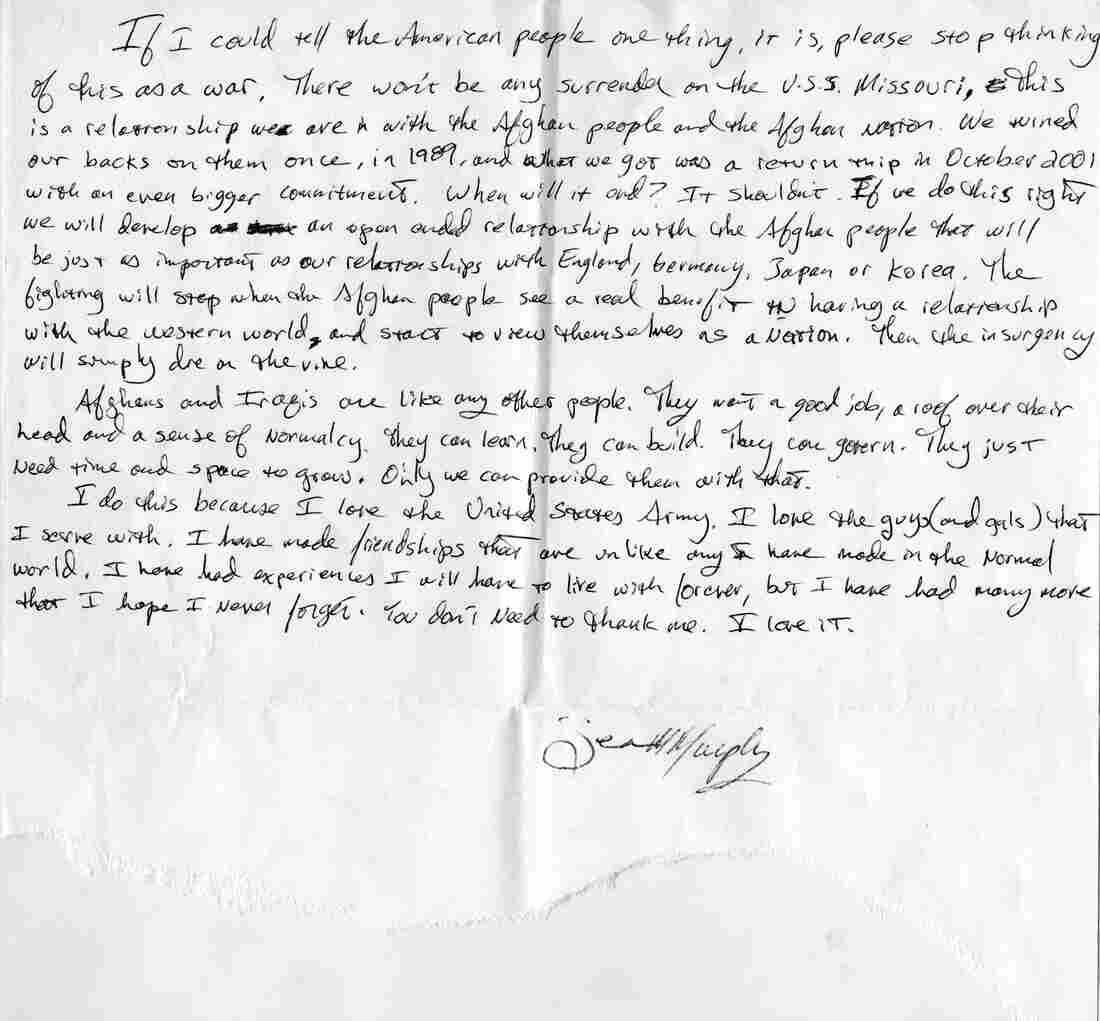 If I could tell the American people one thing, it is, please stop thinking
of this as a war. There won't be any surrender on the U.S.S. Missouri, This
is a relationship we are in with the Afghan people and the Afghan Nation. We turned
our backs on them once, in 1989, and what we got was a return trip in October 2001
with an even bigger commitment. When will it end? It shouldn't. If we do this right
we will develop an open ended relationship with the Afghan people that will
be just as important as our relationships with England, Germany, Japan or Korea. The
fighting will stop when the Afghan people see a real benefit IN having a relationship
with the western world, and start to view themselves as a Nation. Then the insurgency
will simply die on the vine.
Afghans and Iraqis are like any other people. They want a good job, a roof over their
head and a sense of Normalcy. They can learn. They can build. They can govern. They just
Need time and space to grow. Only we can provide them with that.
I do this because I love the United States Army. I love the guys (and gals) that
I serve with. I have made friendships that are unlike any I have made in the Normal
world. I have had experiences I will have to live with forever, but I have had many more
that I hope I Never forget. You don't Need to thank me. I love it.
Murphy